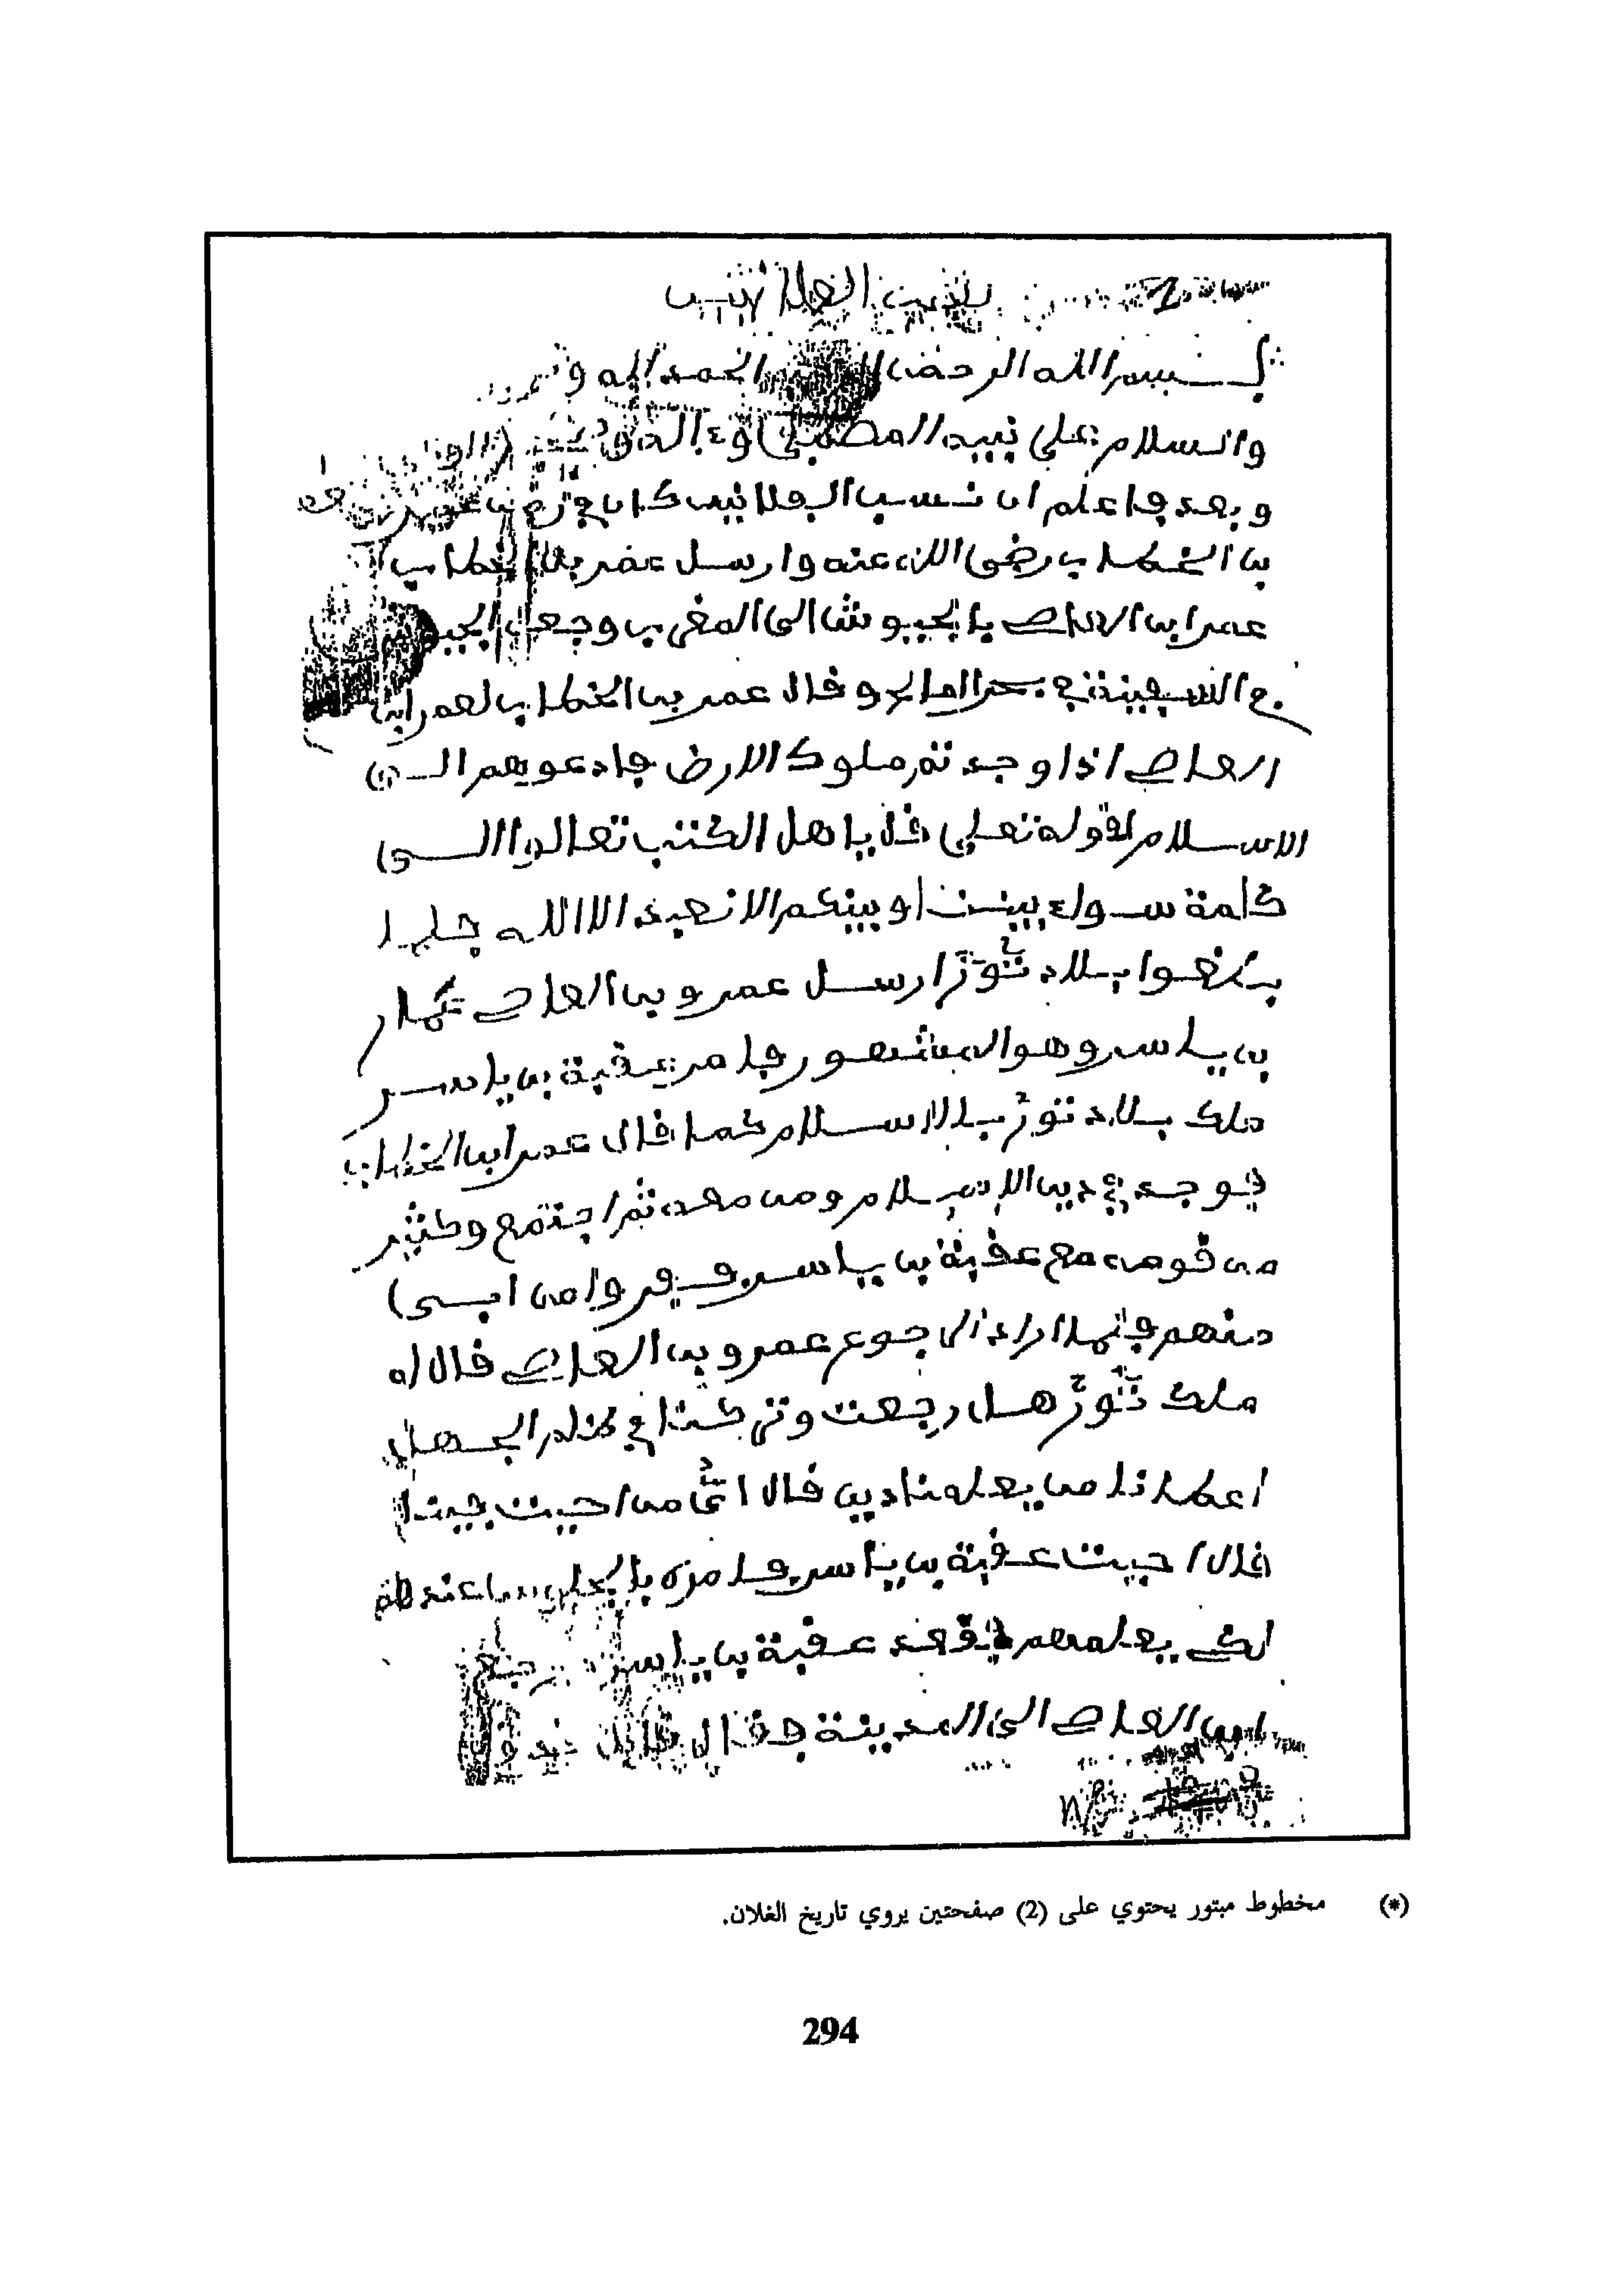 الفلانيين
بسم الله الرحمن الحمد لله و
والسلام علي نبيه المصطفى وءاله و
وبعد فاعلم ان نسب الفلانيين كان في زمن عمر
بن الخطاب رضي الله عنه وارسل عمر بن الخطاب
عمر ابن العاص بالجيوش الى المغرب وجعل الجيوش
في السفينة في بحر المالح وقال عمر بن الخطاب لعمر ابن
العاص اذا وجدتم ملوك الارض فادعوهم الى
الاسلام لقوله تعلى قل ياهل الكتب تعالوا الى
كلمة سواء بيننا وبينكم الا نعبد الا الله فلما
بلغوا بلاد تور ارسل عمرو بن العاص
بن ياسر وهو المشهور فامر عقبة بن ياسر
ملك بلاد تور بالاسلام كما قال عمر ابن الخطاب
فوجد في دين الاسلام ومن معه ثم اجتمع وكثير
من قومه مع عقبة بن ياسر وفروا من ابى
منهم فلما اراد الرجوع عمرو بن العاص قال له
ملك تور هل رجعت وتركتنا في ظلام الجهل
اعطنا من يعلمنا دين قال انت من احببت فينا
قال احببت عقبة بن ياسر فامره بالجلوس عندهم
لكي يعلمهم فقعد عقبة بن ياسر
ابن العاص الى المدينة فقال
(*) مخطوط مبتور يحتوي على (2) صفحتين يروي تاريخ الغلان.
294